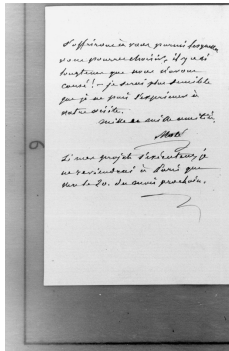 l'offrirons à vous parmi lesquelles
vous pourrez choisir, il y a si
longtems que nous n'avons
causé! – je serai plus sensible
que je ne puis l'exprimer à
votre visite.
mille et mille amitiés.
Si mes projets s'exécutent, je
ne reviendrai à Paris que
vers le 20. du mois prochain.
6